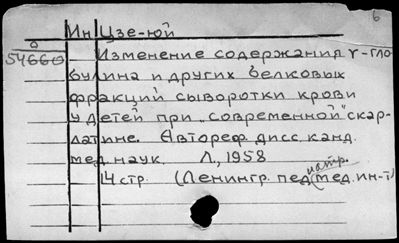 6
Ин Цзе-юй
54660 Изменение содержания γ-гло
булина и других белковых
фракций сыворотки крови
у детей при "современной" скар-
латине. Автореф. дисс. канд.
мед. наук. Л., 1958
14 стр. (Ленингр. педиатр. мед. ин-т)